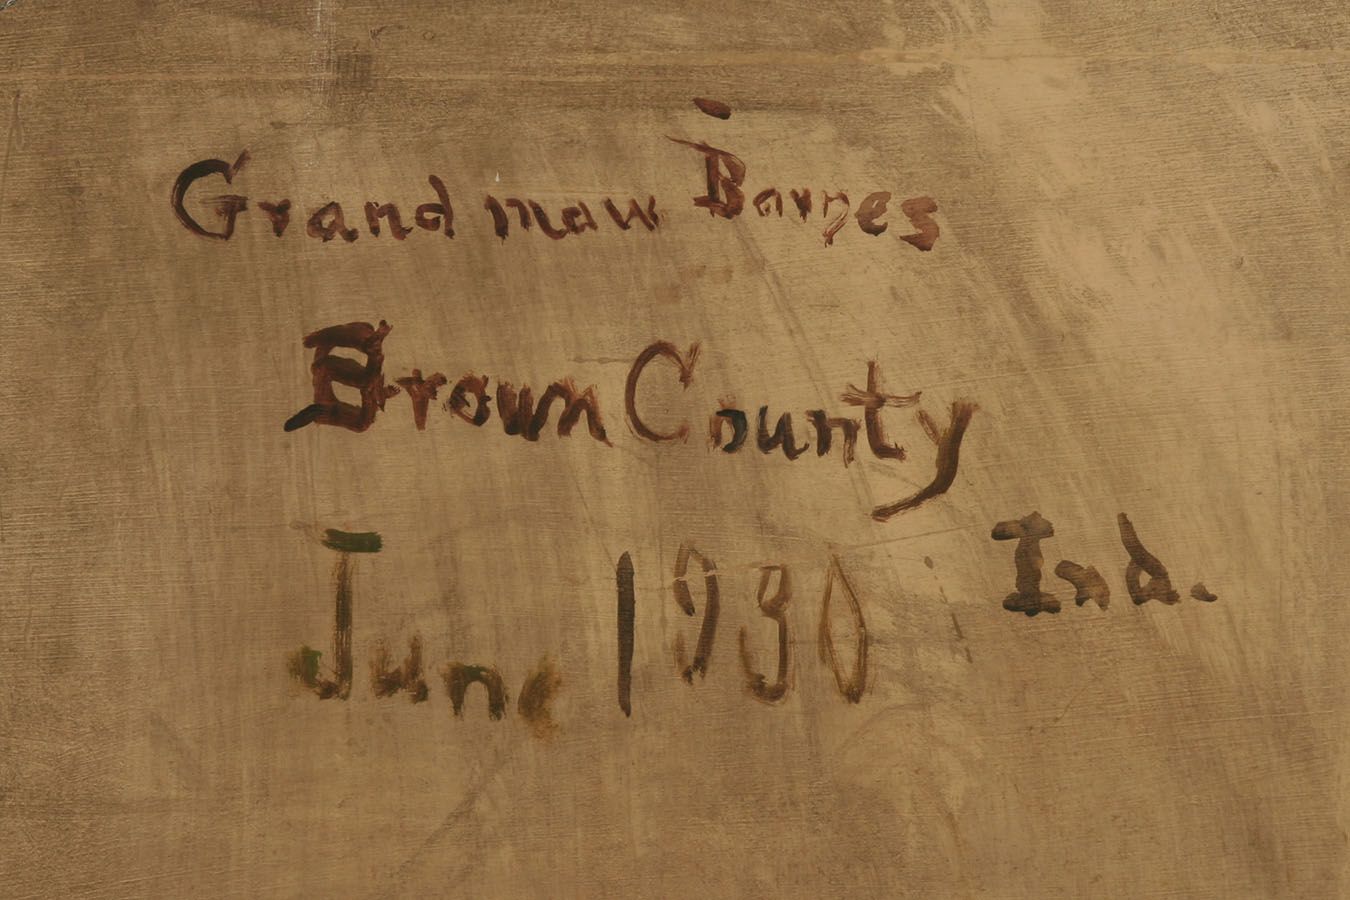 Grand maw Barnes
Brown County
Ind.
June 1930